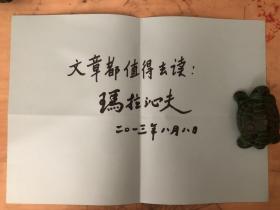 文章都值得去读：
玛拉沁夫
二〇一三年八月八日